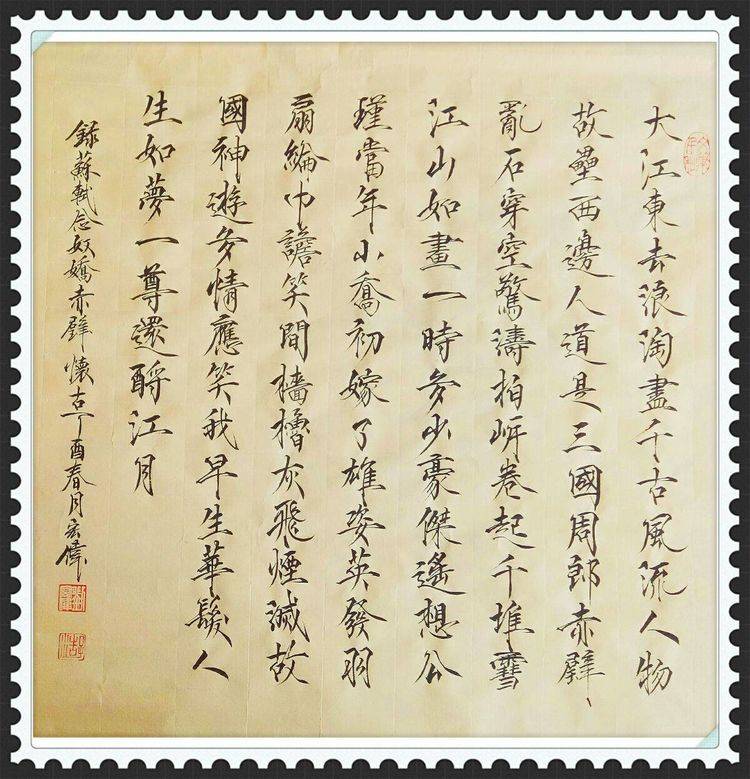 大江東去浪淘盡千古風流人物
故壘西邊人道是三國周郎赤壁
亂石穿空驚濤拍岍卷起千堆雪
江山如畫一時多少豪傑遙想公
瑾當年小喬初嫁了雄姿英發羽
扇綸巾談笑間檣櫓灰飛煙滅故
國神遊多情應笑我早生華髮人
生如夢一尊還酹江月
錄蘇軾念奴嬌赤壁懷古丁酉春月宏偉